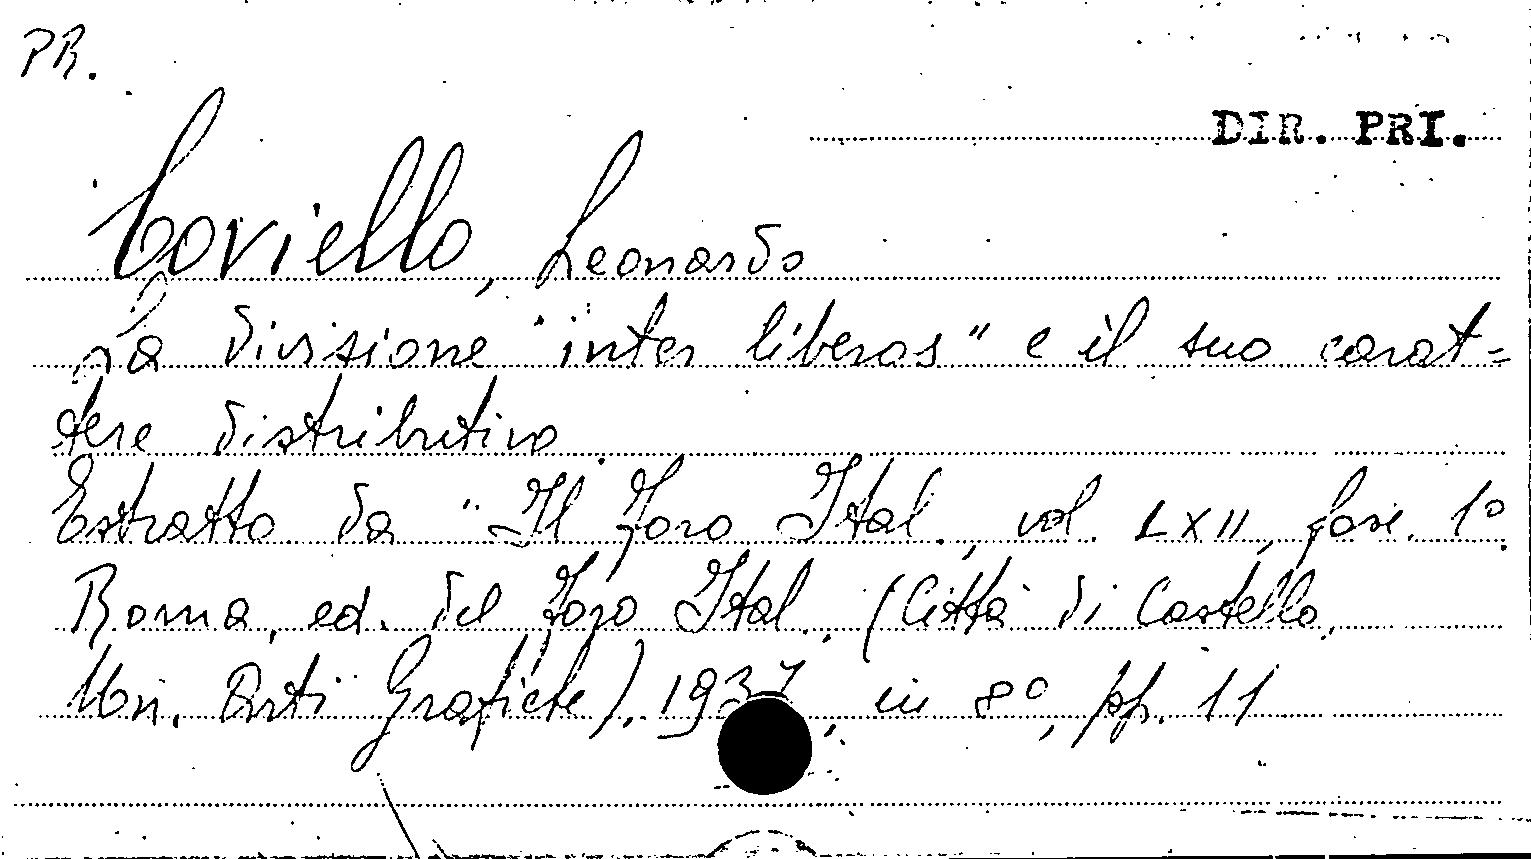 PR.
DIR. PRI.
Coviello, Leonardo
La divisione "inter liberos" e il suo carat=
tere distributivo
Estratto da "Il Foro Ital., vol. LXII, fasc. 1º
Roma, ed. del Foro Ital., (Città di Castello,
Un. Arti Grafiche), 1937, in 8º, pp. 11